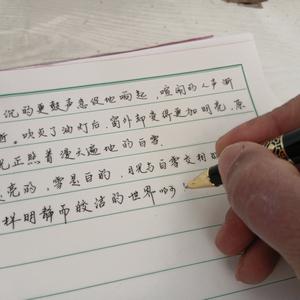 沉的更鼓声急促地响起，喧闹的人声渐
断。吹灭了油灯后，窗外却变得更加明亮，原
光正照着漫天遍地的白雪。
亮的，雪是白的，月光与白雪交相
样明静而皎洁的世界